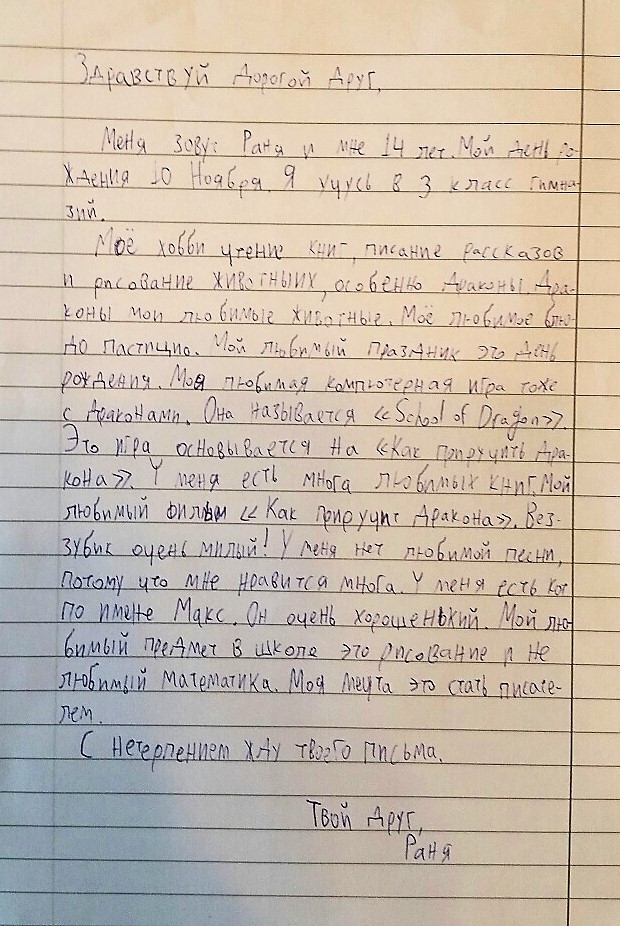 Здравствуй Дорогой Друг,
Меня зовут Раня и мне 14 лет. Мой день ро-
ждения 10 Ноября. Я учусь в 3 класс гимна-
зий.
Моё хобби чтение книг, писание рассказов
и рисование животныих, особенно драконы. Дра-
коны мои любимые животные. Моё любимое блю-
до пастицио. Мой любимый праздник это день
рождения. Моя любимая компютерная игра тоже
с драконами. Она называется «School of Dragon».
Это игра основывается на «Как приручить дра-
кона». У меня есть многа любимых книг. Мой
любимый фильм «Как приручит дракона». Без-
зубик очень милый! У меня нет любимой песни,
потому что мне нравится многа. У меня есть кот
по имене Макс. Он очень хорошенький. Мой лю-
бимый предмет в школе это рисование и не
любимый математика. Моя мечта это стать писате-
лем.
С нетерпением жду твоего письма.
Твой друг,
Раня